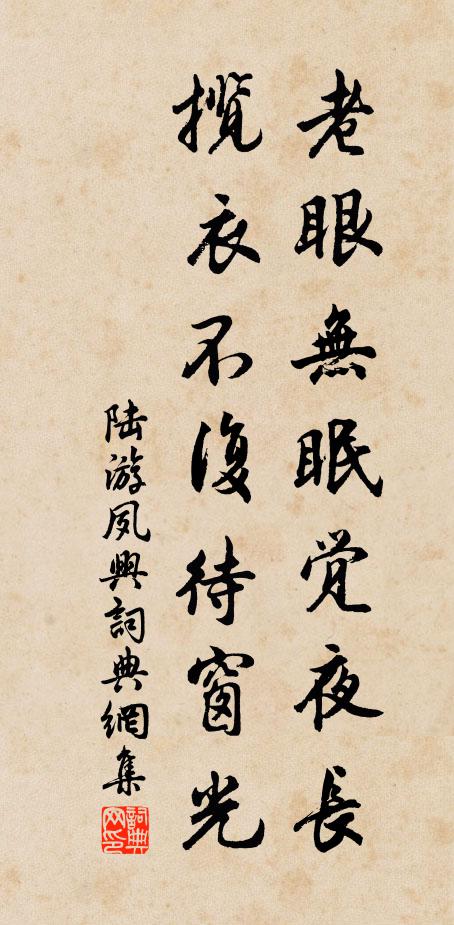 老眼無眠覚夜長
攬衣不復待窗光
陸游夙興詞典網集
詞典网印